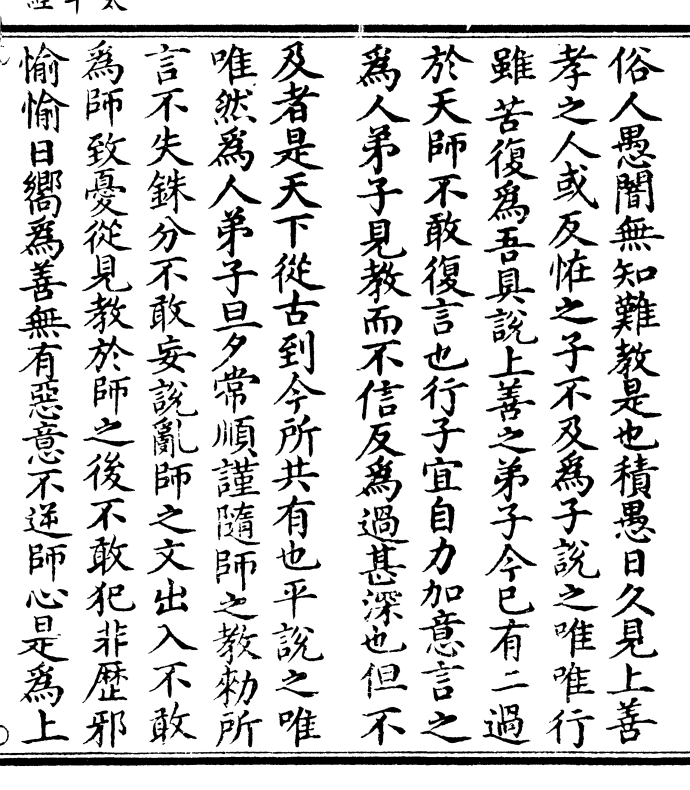 俗人愚闇無知難教是也積愚日久見上善
孝之人或反恠之子不及為子說之唯唯行
雖苦復為吾具說上善之弟子今已有二過
於天師不敢復言也行子宜自力加意言之
為人弟子見教而不信反為過甚深也但不
及者是天下從古到今所共有也平說之唯
唯然為人弟子旦夕常順謹隨師之教勑所
言不失銖分不敢妄說亂師之文出入不敢
為師致憂從見教於師之後不敢犯非歷邪
愉愉日嚮為善無有惡意不逆師心是為上